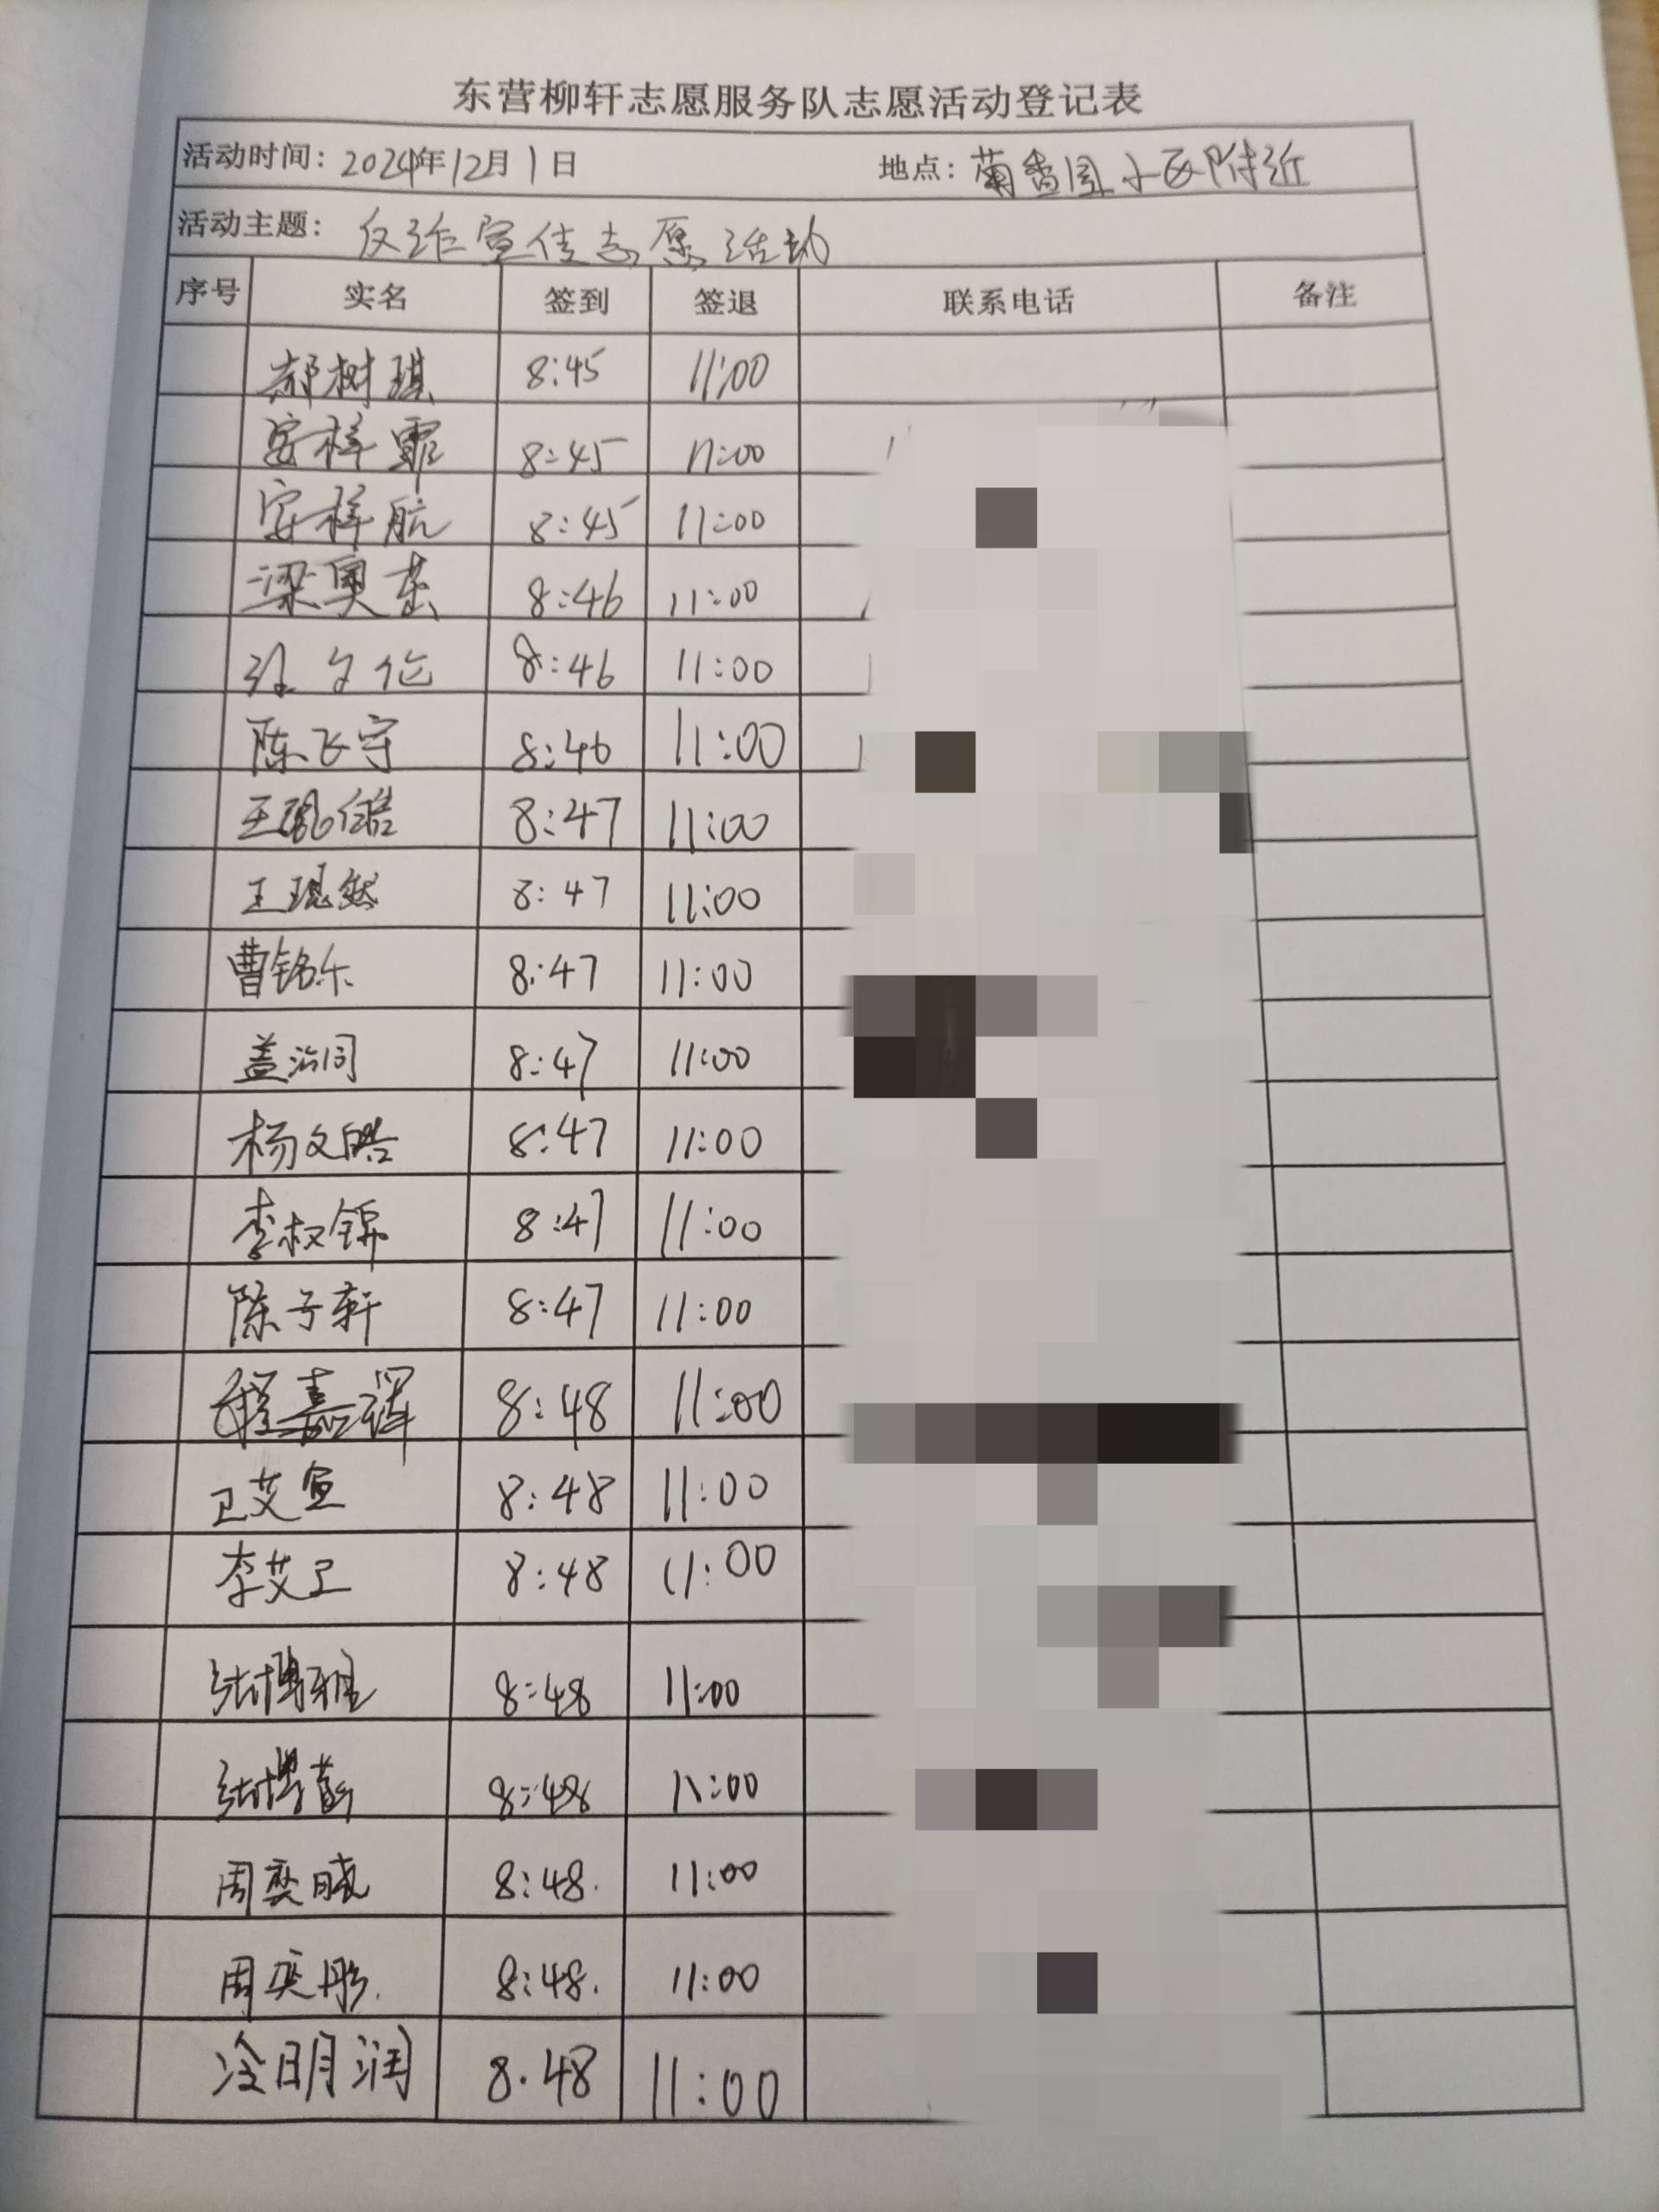 东营柳轩志愿服务队志愿活动登记表
活动时间：2024年12月1日 地点：菊香园小区附近
活动主题：反诈宣传志愿活动
序号 实名 签到 签退 联系电话 备注
郝树琪 8:45 11:00
安梓霏 8:45 11:00
安梓航 8:45 11:00
梁奥 8:46 11:00
8:46 11:00
陈飞宇 8:46 11:00
王 8:47 11:00
王琨然 8:47 11:00
曹铭乐 8:47 11:00
盖治同 8:47 11:00
杨文皓 8:47 11:00
李权锦 8:47 11:00
陈子轩 8:47 11:00
程嘉译 8:48 11:00
卫艾宣 8:48 11:00
李艾卫 8:48 11:00
张博雅 8:48 11:00
张博 8:48 11:00
周奕晓 8:48. 11:00
周奕彤. 8:48. 11:00
冷明润 8.48 11:00